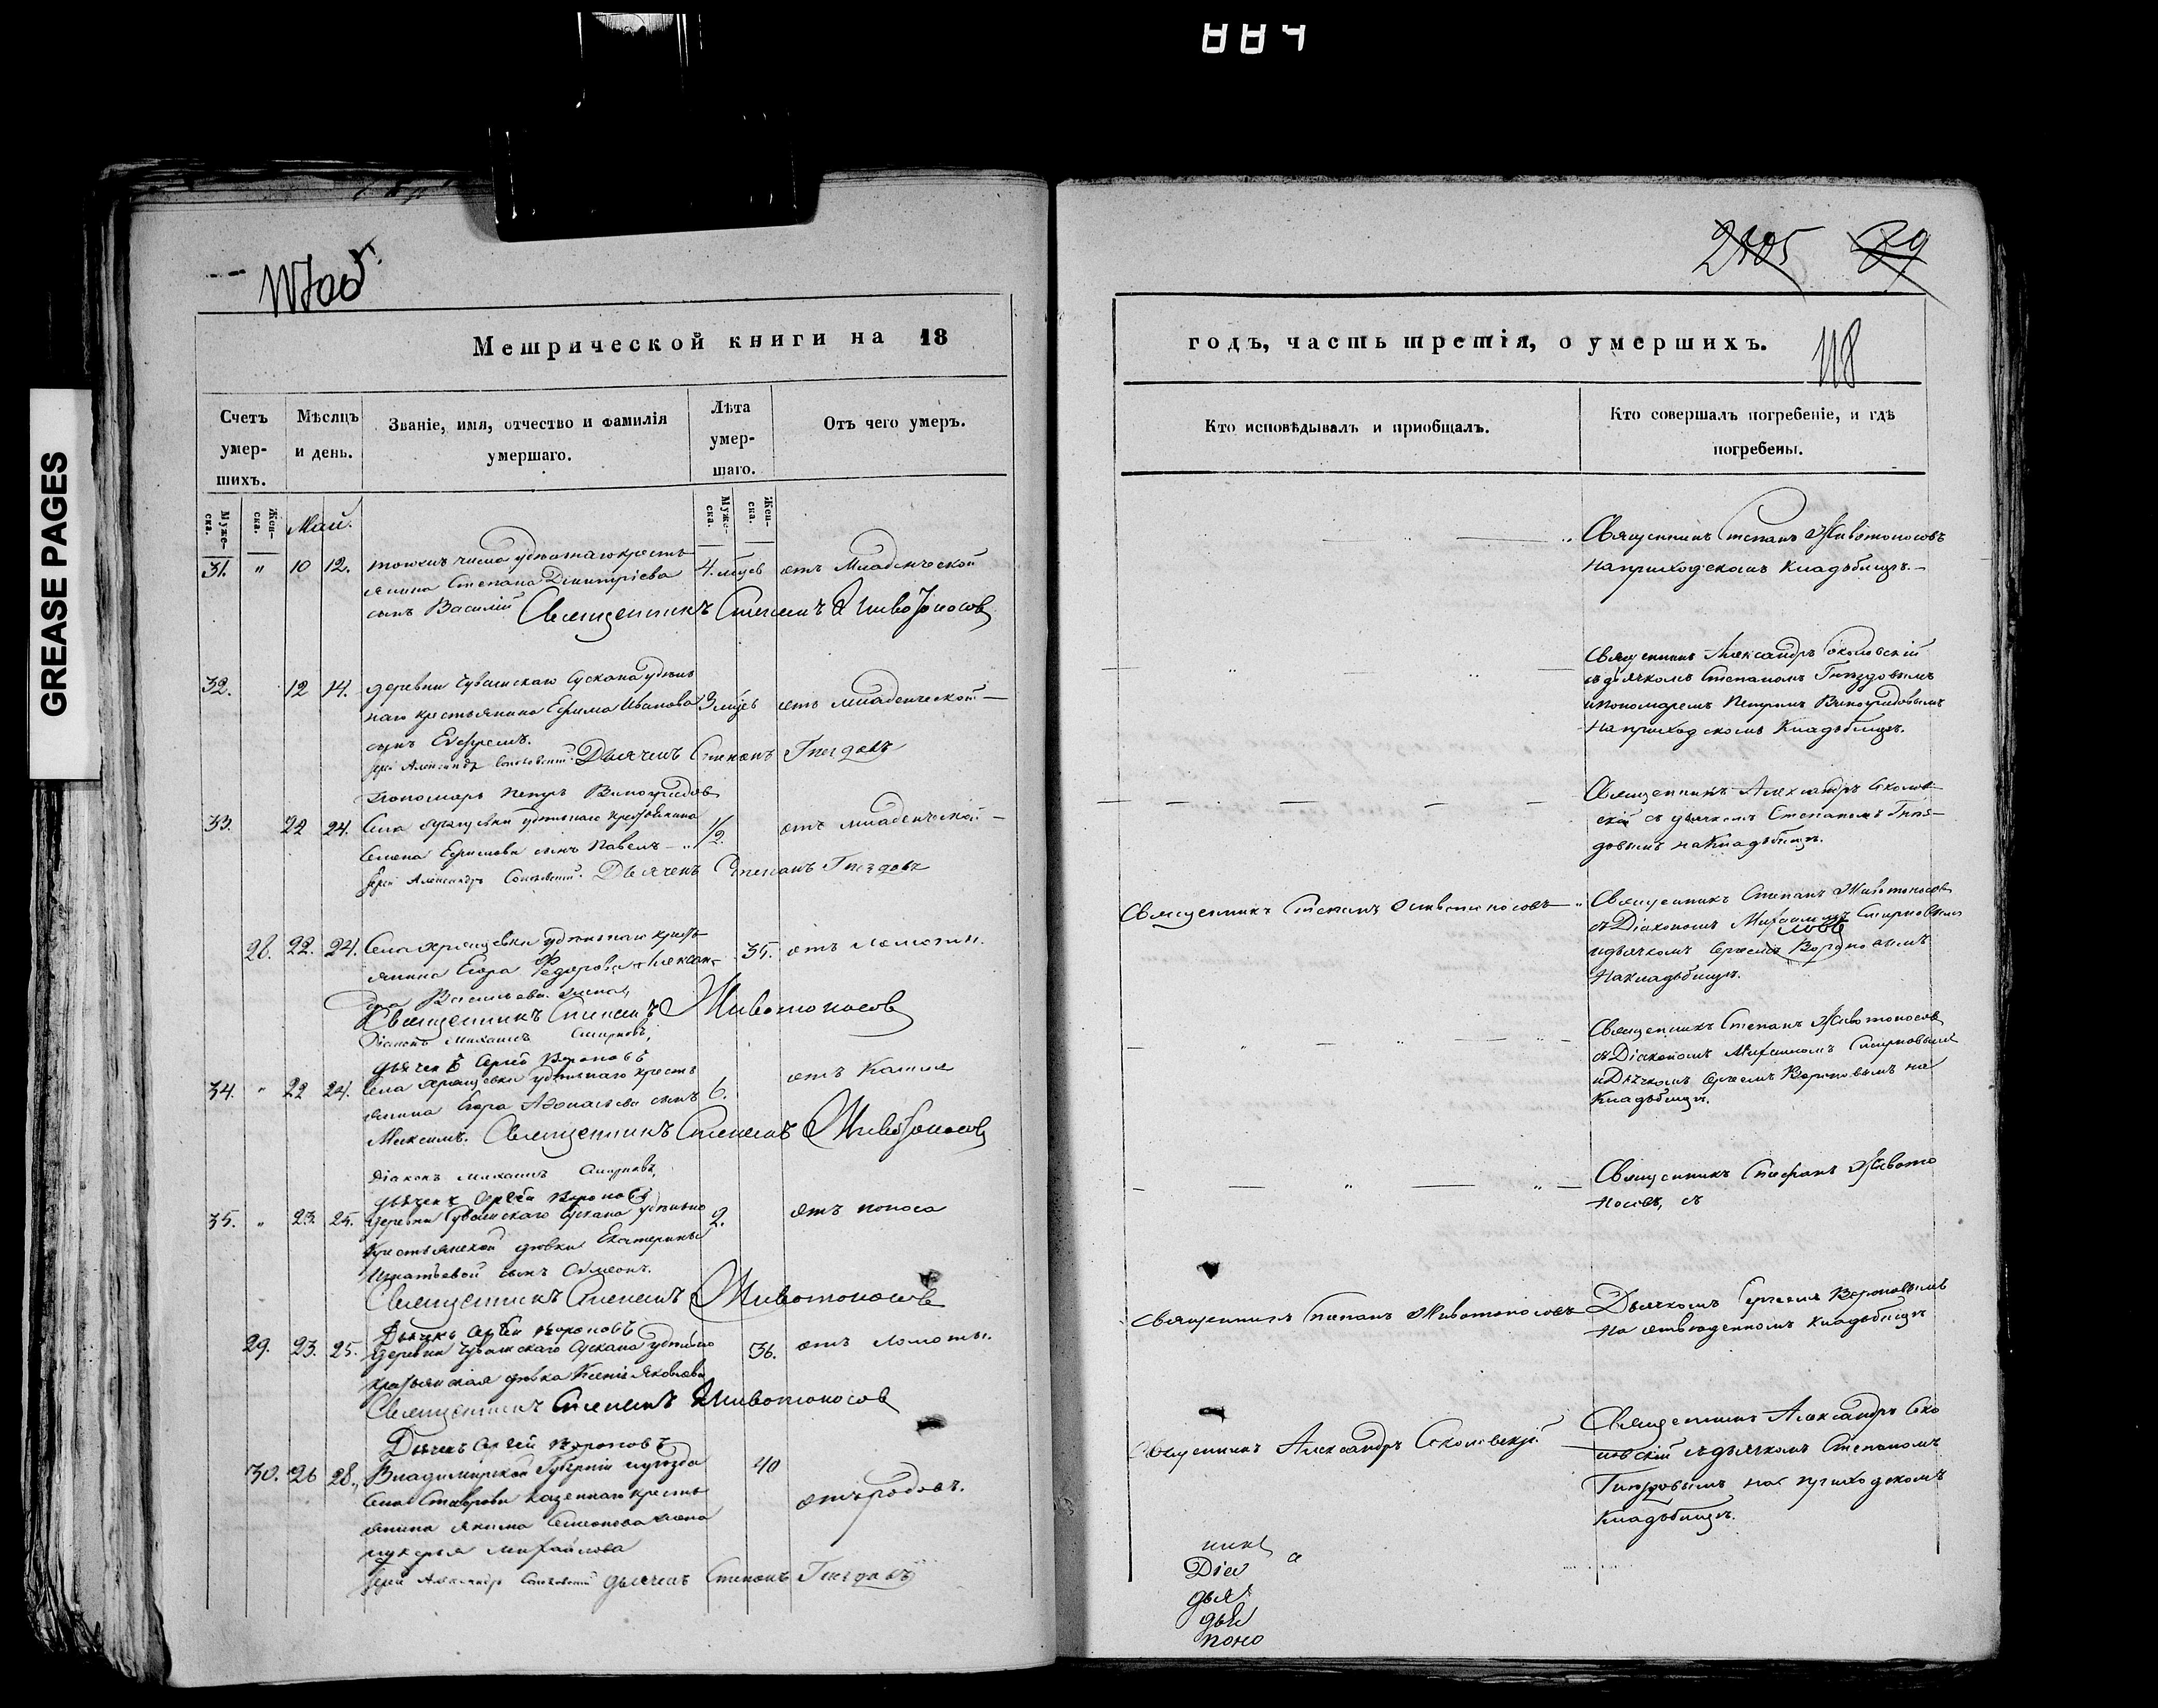 884
GREASE PAGES
2105 89
Метрической книги на 18
годъ, часть третія, о умершихъ.
118
Счетъ умер-шихъ.
Мѣсяцъ и день.
Званіе, имя, отчество и фамилія умершаго.
Лѣта умер-шаго.
Отъ чего умеръ.
Кто исповѣдывалъ и приобщалъ.
Кто совершалъ погребеніе, и гдѣ погребены.
Муже-ска.
Жен-ска.
Май.
Муже-ска.
Жен-ска.
31. " 10 12. удѣльнаго кресть
янина Степана Дмитріева
сынъ Василій
4. мцев
отъ младенческой
Священникъ Степанъ Животоносовъ
Священникъ Степанъ Животоносовъ
на приходскомъ кладбищѣ.
32. 12 14. деревни Чувашскаго Сускана удѣль
наго крестьянина Ефима Иванова
сынъ Евфремъ.
3 мцев
отъ младенческой
Іерей Александръ Соколовскій. Дьячекъ Степанъ Гнездовъ
Пономарь Петръ Виноградовъ
Священникъ Александръ Соколовскій
съ дьячкомъ Степаномъ Гнездовымъ
и пономаремъ Петромъ Виноградовымъ
на приходскомъ кладбищѣ.
33. 22 24. Села Хрящевки удѣльнаго крестьянина
Семена Ефимова сынъ Павелъ
1/2.
отъ младенческой
Іерей Александръ Соколовскій. Дьячекъ Степанъ Гнездовъ
Священникъ Александръ Соколов
скій съ дьячкомъ Степаномъ Гнез
довымъ на кладбищѣ.
28. 22. 24. Села Хрящевки удѣльнаго кресть
янина Егора Федорова Алексан
дра Васильева жена
35.
отъ ломоты.
Священникъ Степанъ Животоносовъ
Діаконъ Михаилъ Смирновъ,
дьячекъ Сергей Вороновъ
Священникъ Степанъ Животоносовъ
Священникъ Степанъ Животоносовъ
съ Діакономъ Михаиломъ Смирновымъ
и дьячкомъ Сергеемъ Вороновымъ
на кладбищѣ.
34. " 22 24. Села Хрящевки удѣльнаго кресть
янина Егора Афонасьева сынъ
Максимъ.
6.
отъ кашля
Священникъ Степанъ Животоносовъ
Діаконъ Михаилъ Смирновъ,
дьячекъ Сергей Вороновъ
Священникъ Степанъ Животоносовъ
съ Діакономъ Михаиломъ Смирновымъ
и Дьячкомъ Сергеемъ Вороновымъ на
кладбищѣ.
35. " 23. 25. Деревни Чувашскаго Сускана удѣльно
крестьянской дѣвки Екатерины
Игнатьевой сынъ Симеонъ.
2.
отъ поноса
Священникъ Степанъ Животоносовъ
Дьячекъ Сергей Вороновъ
Священникъ Стефанъ Живото
носовъ, съ
Дьячкомъ Сергеемъ Вороновымъ
на отведенномъ кладбищѣ
29. 23. 25. Деревни Чувашскаго Сускана удѣльно
крестьянская дѣвка Ксенія Яковлева
36.
отъ ломоты.
Священникъ Степанъ Животоносовъ
Дьячекъ Сергей Вороновъ
Священникъ Степанъ Животоносовъ
30. 26 28. Владимирской Губерніи и уѣзда
села Ставрова казеннаго кресть
янина Якима Семенова жена
Лукерья Михайлова
40
отъ родовъ.
Іерей Александръ Соколовскій дьячекъ Степанъ Гнездовъ
Священникъ Александръ Соколовскій
Священникъ Александръ Соко
ловскій съ дьячкомъ Степаномъ
Гнездовымъ на приходскомъ
кладбищѣ.
никъ
Діа
дья
дья
поно